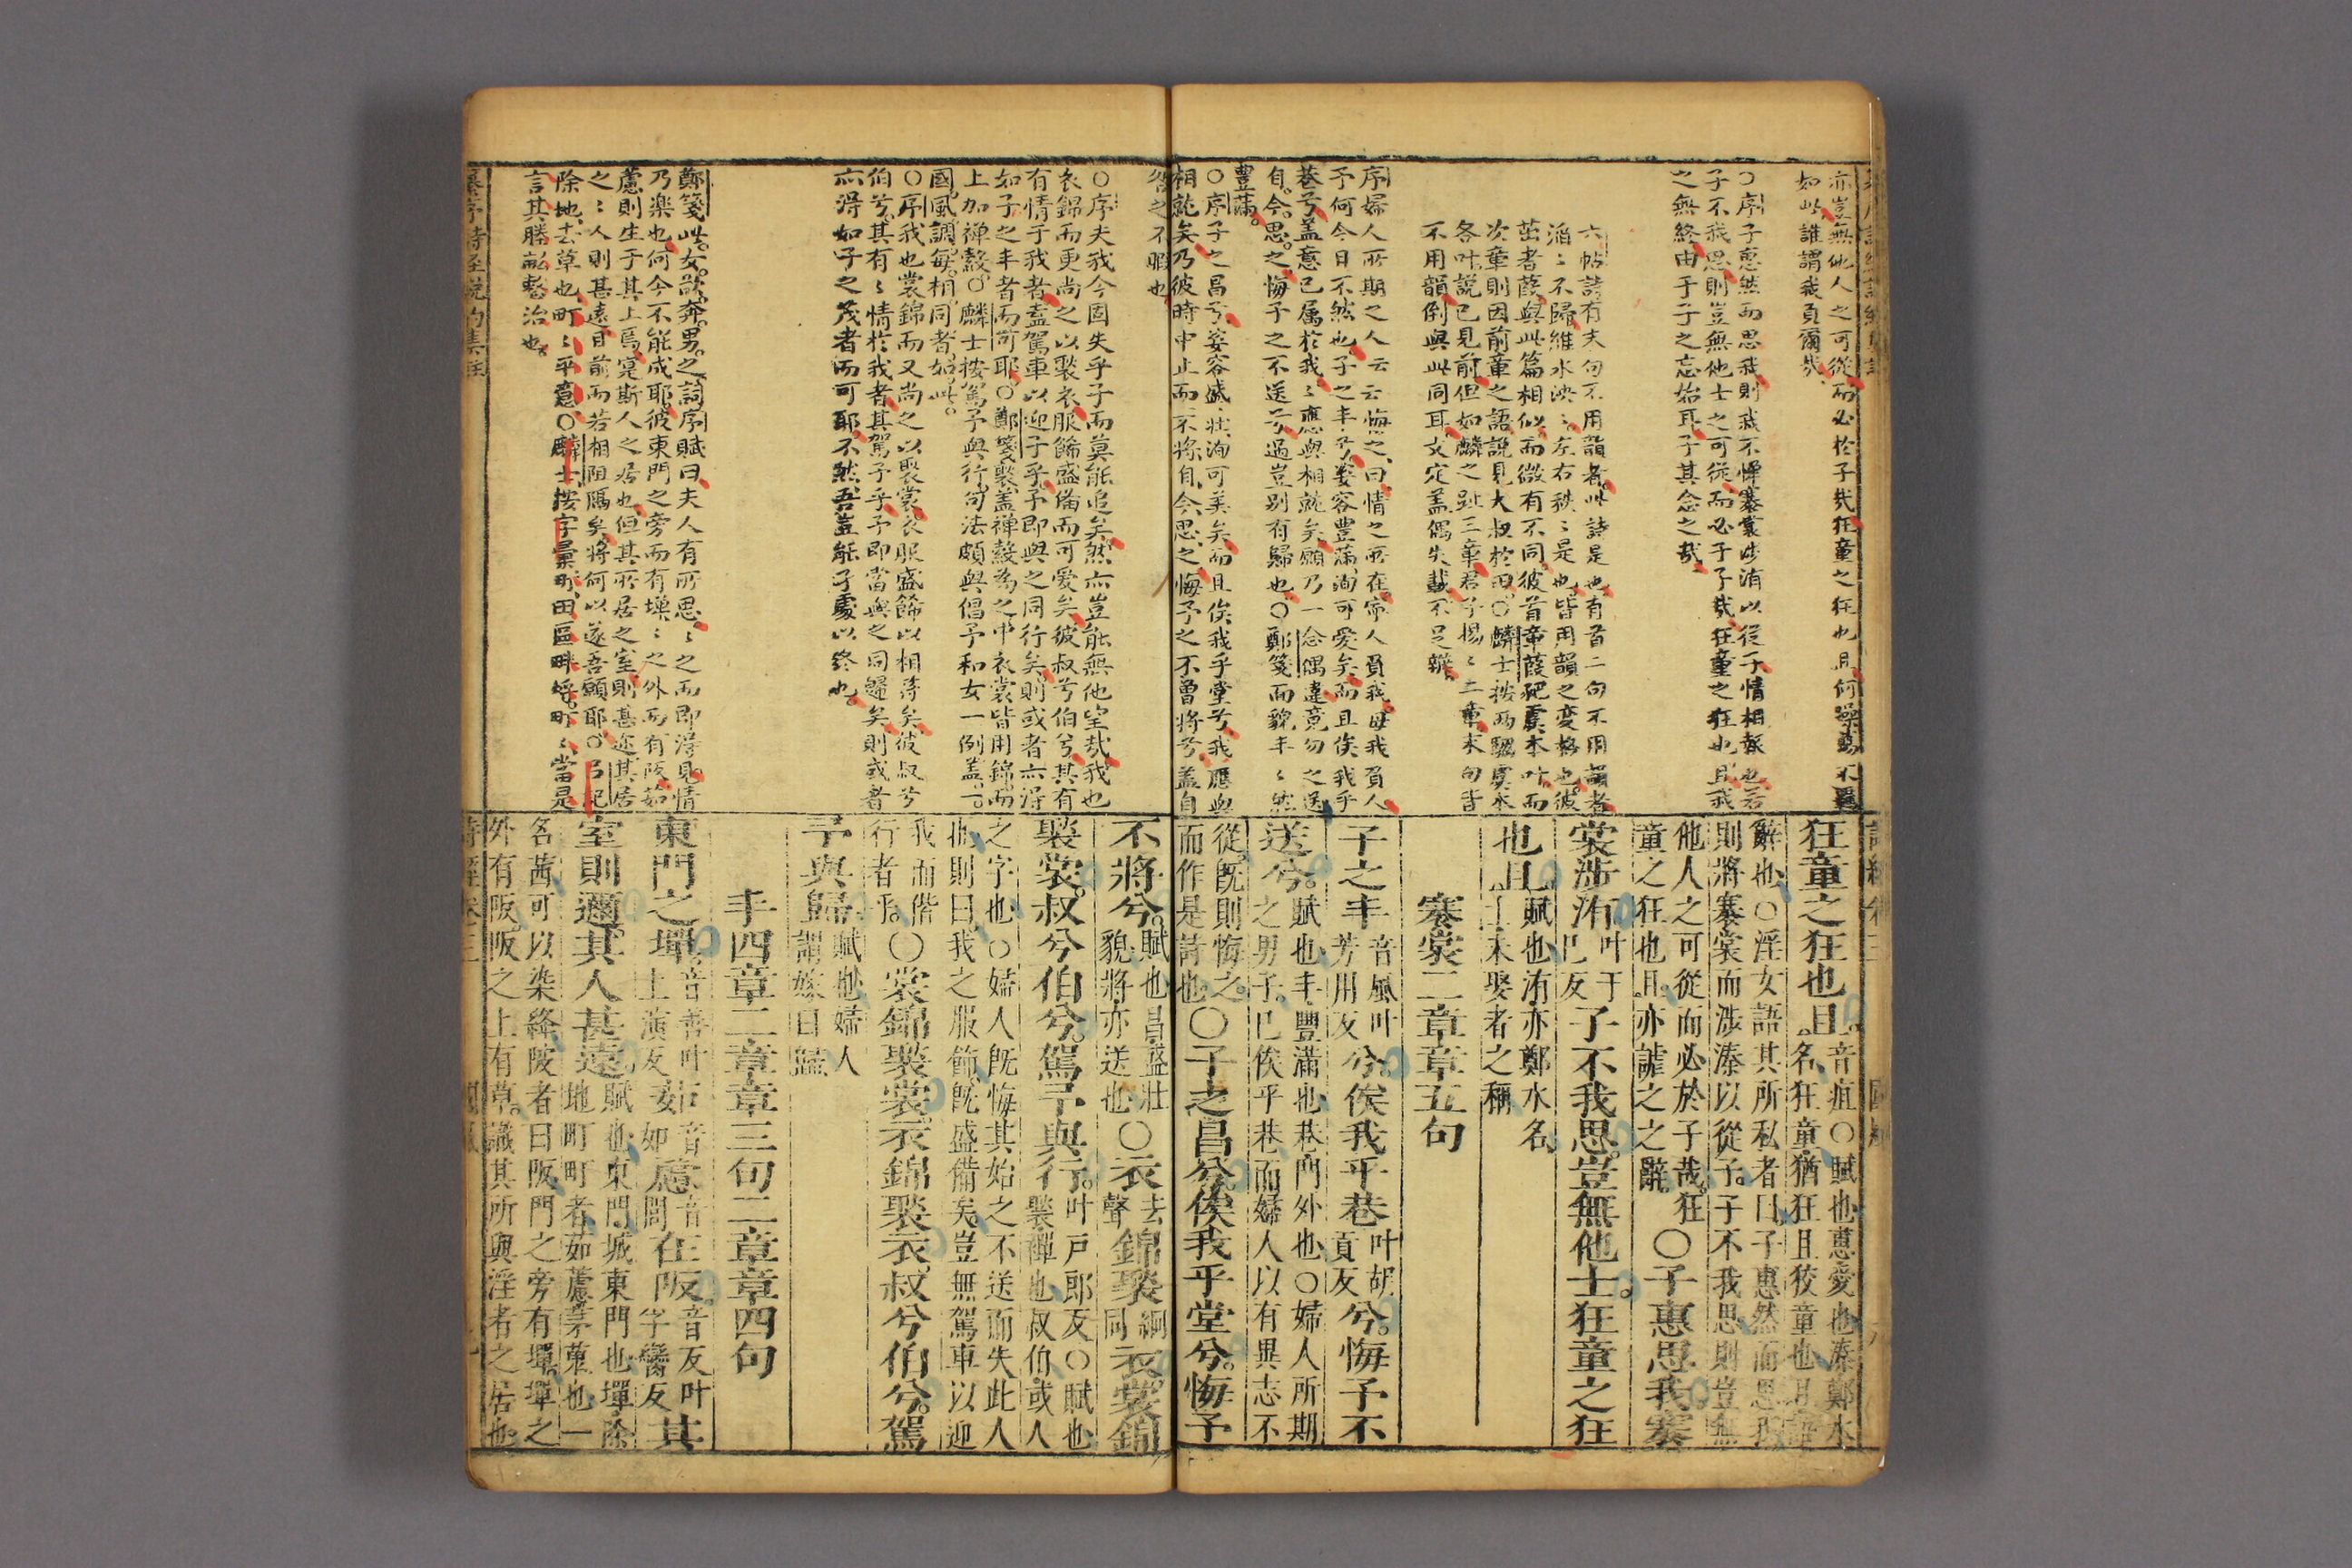 亦豈無他人之可從而必於子哉狂童之狂也且何躁易不異
如此誰謂我負爾哉
○序子惠然而思我則我不憚褰裳涉洧以從子情相報也若
子不我思則豈無他士之可從而必于子哉狂童之狂也且我
之無終由于子之忘始耳子其念之哉
六帖詩有夫句不用韻者此詩是也有首二句不用韻者
滔滔不歸維水泱泱左右秩秩是也皆用韻之変格也彼
茁者葭與此篇相似而微有不同彼首章葭豝虞本叶而
次章則因前章之語說見大叔於田○麟士按兩騶虞本
各叶說已見前但如麟之趾三章君子揚揚二章末句皆
不用韻例與此同耳文定盖偶失載不足辨
序婦人所期之人云云悔之曰情之所在寧人負我毋我負人
予何今日不然也子之丰兮姿容豐滿洵可愛矣而且俟我乎
巷兮盖意已属於我我應與相就矣顧乃一念偶違竟勿之送
自今思之悔予之不送兮過豈别有歸也○鄭箋面貌丰丰然
豐滿
○序子之昌兮姿容盛壯洵可美矣而且俟我乎堂兮我應與
相就矣乃彼時中止而不將自今思之悔予之不曾將兮盖自
咎之不暇也
○序夫我今固失乎子而莫能追矣然亦豈能無他望哉我也
衣錦而更尚之以褧衣服餙盛俻而可爱矣彼叔兮伯兮其有
有情于我者盍駕車以迎子乎予即與之同行矣則或者亦得
如子之丰者而可耶○鄭箋褧盖禪縠為之中衣裳皆用錦而
上加禪縠○麟士按駕予與行句法頗與倡予和女一例盖一
國風調每相同者如此
○序我也裳錦而又尚之以褧裳衣服盛餙以相待矣彼叔兮
伯兮其有有情於我者其駕予乎予即當與之同歸矣則或者
亦得如子之茂者而可耶不然吾豈能子處以终也
鄭箋此女欲奔男之詞序賦曰夫人有所思思之而即得見情
乃楽也何今不能成耶彼東門之旁而有墠墠之外而有阪茹
藘則生于其上焉寔斯人之居也但其所居之室則甚迩其居
之之人則甚遠目前而若相阻隔矣將何以遂吾願耶○
除地去草也町町平意○麟士按字彙町田區畔埒町町當是
言其勝畝整治也
狂童之狂也且音疽○賦也惠愛也溱鄭水
名狂童猶狂且狡童也且語
辭也○淫女語其所私者曰子惠然而思我
則將褰裳而涉溱以從子子不我思則豈無
他人之可從而必於子哉狂
童之狂也且亦謔之之辭○子惠思我褰
裳涉洧叶于已反子不我思豈無他士狂童之狂
也且賦也洧亦鄭水名
士未娶者之稱
褰裳二章章五句
子之丰音風叶芳用反兮俟我乎巷叶胡貢反兮悔予不
送兮賦也丰豐滿也巷門外也○婦人所期
之男子已俟乎巷而婦人以有異志不
從既則悔之
而作是詩也○子之昌兮俟我乎堂兮悔予
不將兮賦也昌盛壯貌將亦送也○衣去聲錦褧絅同衣裳錦
褧裳叔兮伯兮駕予與行叶戸郎反○賦也
褧禪也叔伯或人
之字也○婦人既悔其始之不送而失此人
也則曰我之服飾既盛備矣豈無駕車以迎
我而偕
行者乎○裳錦褧裳衣錦褧衣叔兮伯兮駕
予與歸賦也婦人謂嫁曰歸
丰四章二章章三句二章章四句
東門之墠音善叶上演反茹音如藘音閭在阪音反叶孚臠反其
室則邇其人甚遠賦也東門城東門也墠除
地町町者茹藘茅蒐也一
名茜可以染絳陂者曰阪門之旁有墠墠之
外有阪阪之上有草識其所與淫者之居也